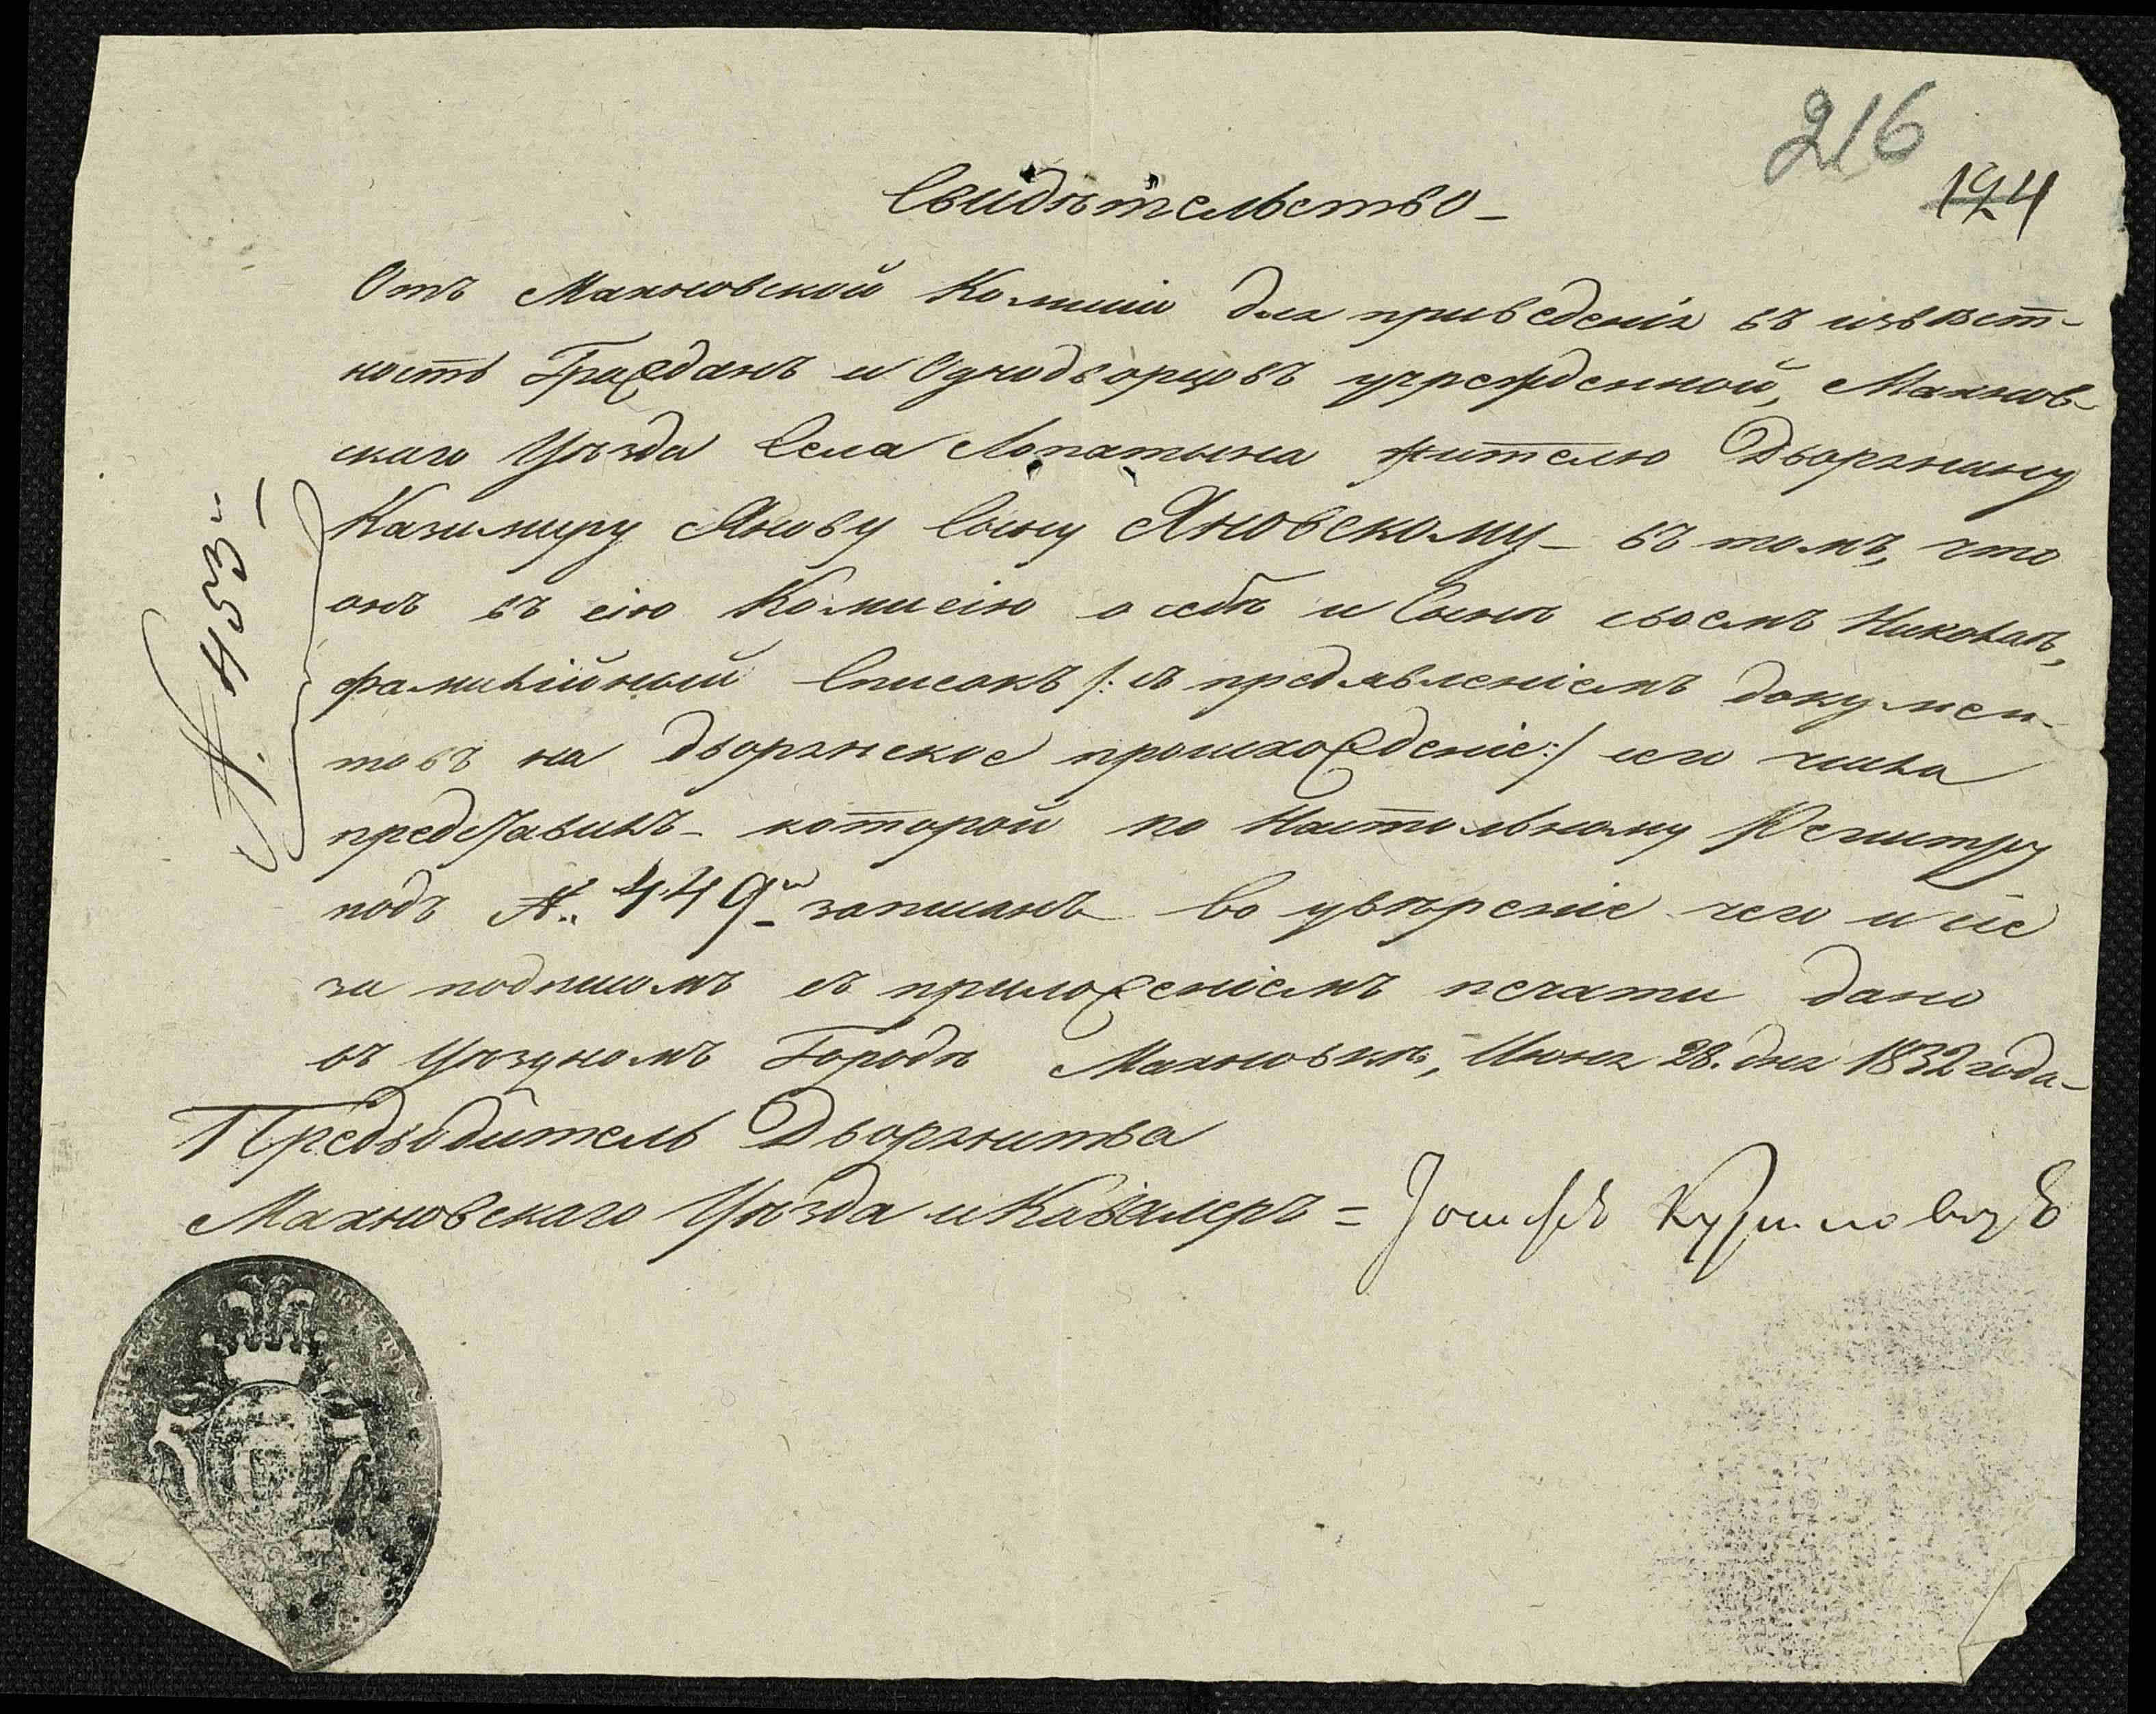 216
124
Свидѣтельство –
Отъ Махновской Комисіи для приведенія въ извѣст-
ность Гражданъ и Однодворцовъ учрежденной, Махнов-
скаго Уѣзда Села Лопатына жителю Дворянину
Казимиру Янову Сыну Яновскому – въ томъ, что
онъ въ сію Комисію о себѣ и Сынѣ своемъ Николаѣ,
фамилійный Списокъ /: съ предъявленіемъ докумен-
товъ на дворянское происхожденіе :/ сего числа
представилъ – которой по Настольному Регистру
подъ №. 449м записанъ во увѣреніе чего и сіе
за подписомъ съ приложеніемъ печати дано
въ Уѣздномъ Городѣ Махновкѣ, Июня 28. дня 1832 года –
Предводитель Дворянства
Махновскаго Уѣзда и Кавалеръ = Іосифъ
№. 453